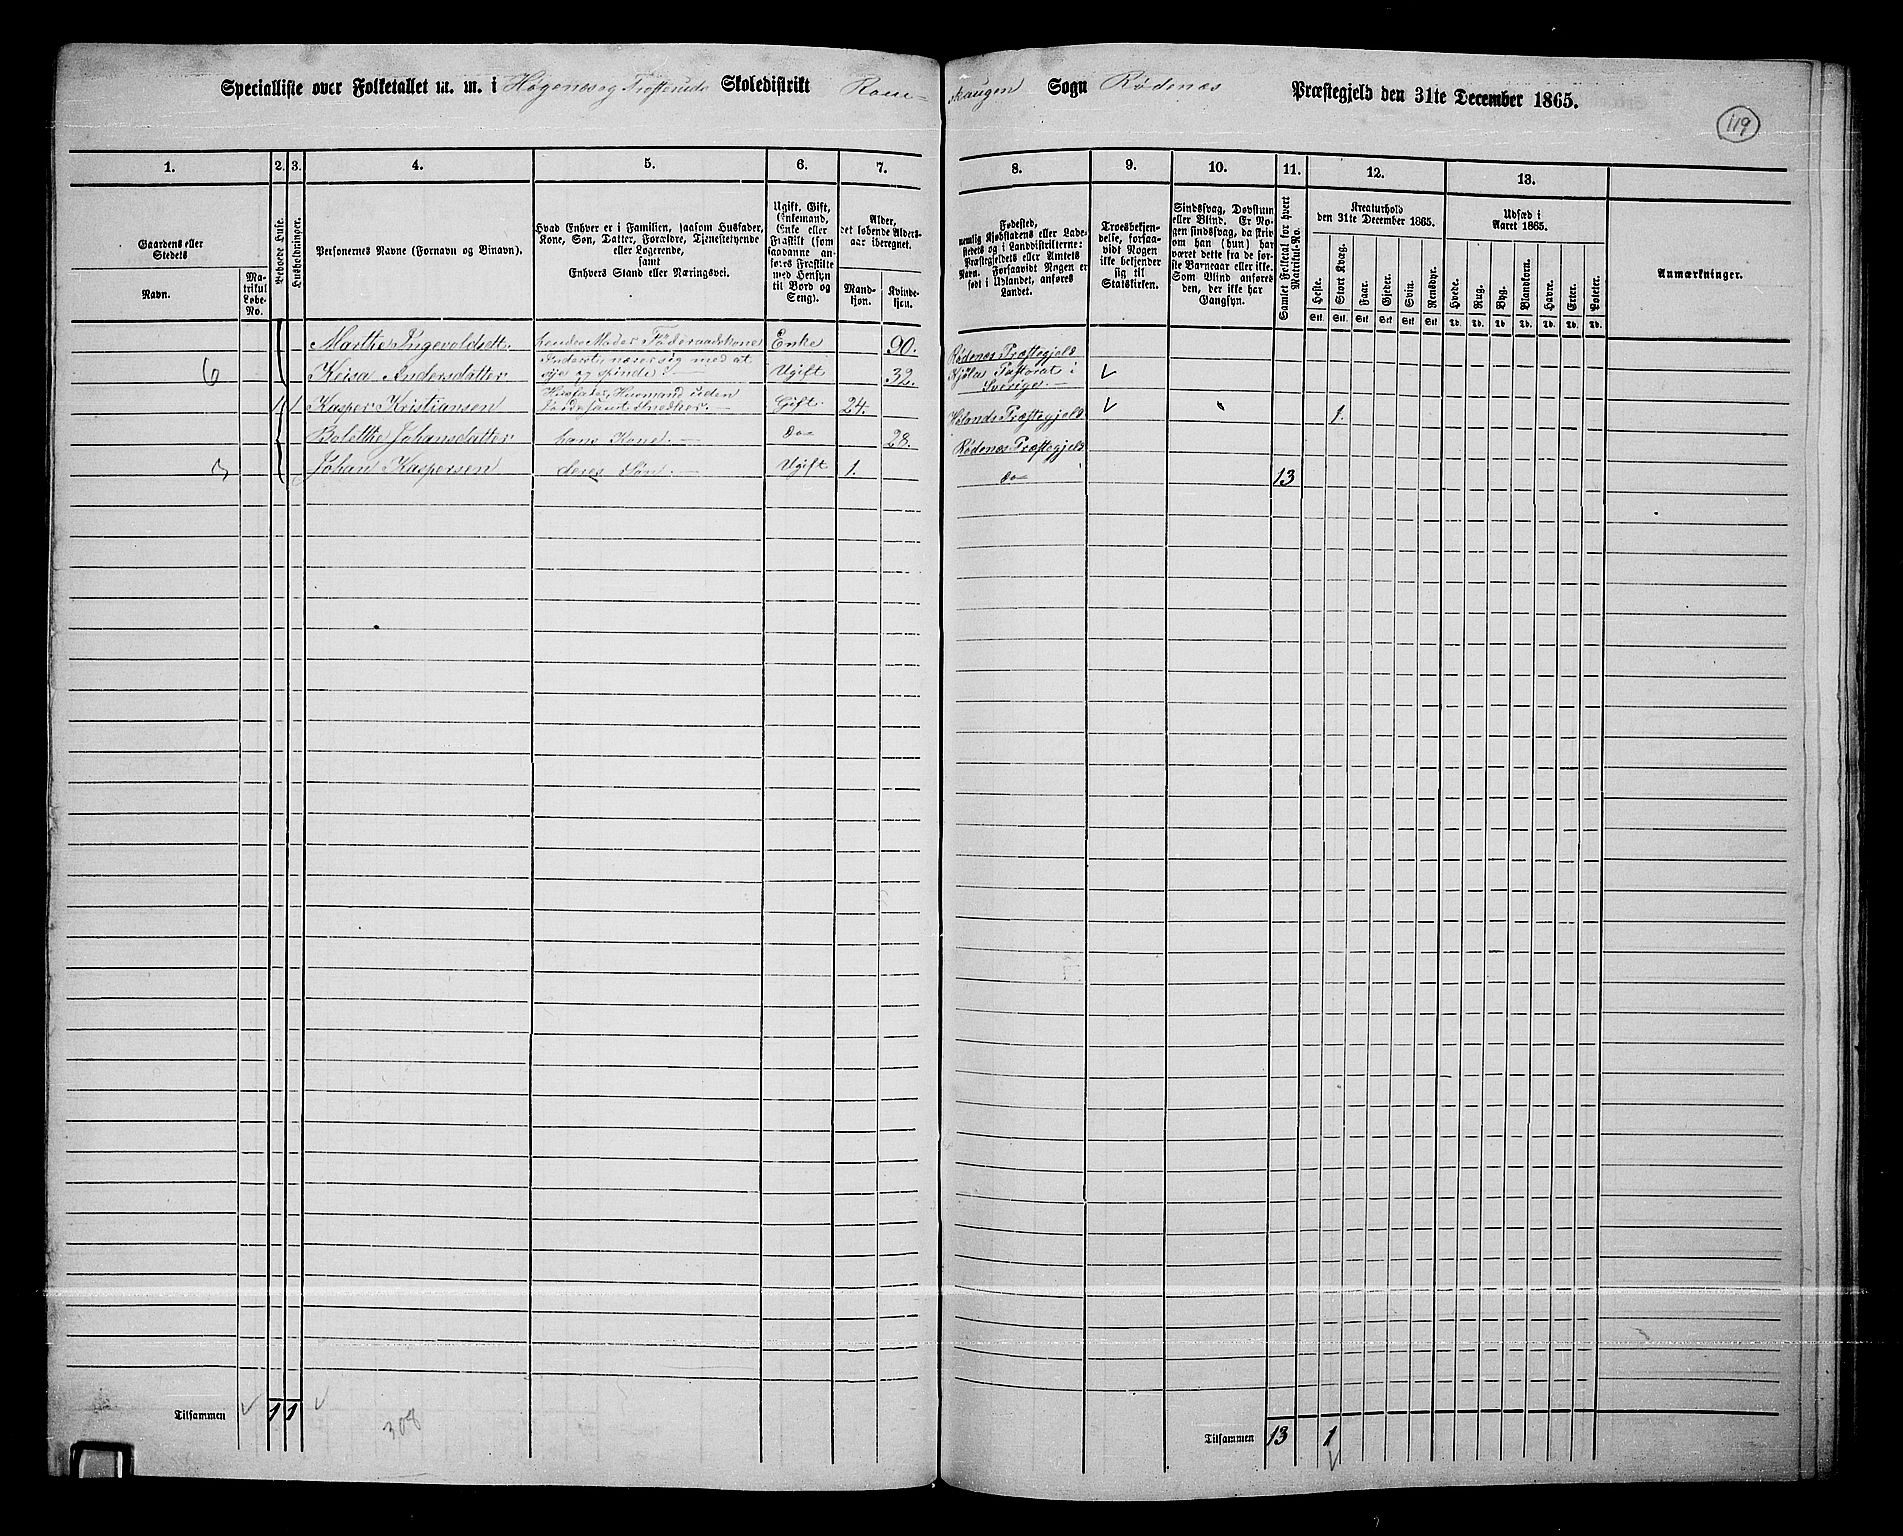 Specialliste over Folketallet m. m. i Høgenes og Trosterud Skoledistrikt Rom-
skaugen Sogn Rødenæs Præstegjeld den 31te December 1865.
119
1. 2. 3. 4. 5. 6. 7.
8. 9. 10. 11. 12. 13.
Gaardens eller
Stedets
Navn.
Ma-
trikul
Løbe-
No.
Beboede Huse.
Husholdninger.
Personernes Navne (Fornavn og Binavn).
Hvad Enhver er i Familien, saasom Husfader,
Kone, Søn, Datter, Forældre, Tjenestetyende
eller Logerende,
samt
Enhvers Stand eller Næringsvei.
Ugift, Gift,
Enkemand,
Enke eller
Fraskilt (som
saadanne an-
føres Fraskilte
med Hensyn
til Bord og
Seng).
Alder,
det løbende Alders-
aar iberegnet.
Mand-
kjøn.
Kvinde-
kjøn.
Fødested,
nemlig Kjøbstadens eller Lade-
stedets og i Landdistrikterne:
Præstegjeldets eller Amtets
Navn. Forsaavidt Nogen er
født i Udlandet, anføres
Landet.
Troesbekjen-
delse, forsaa-
vidt Nogen
ikke bekjender
sig til
Statskirken.
Sindssvag, Døvstum
eller Blind. Er No-
gen sindssvag, da skriv
om han (hun) har
været dette fra de før-
ste Barneaar eller ikke.
Som Blind anføres
den, der ikke har
Gangsyn.
Samlet Folketal for hvert
Matrikul-No.
Kreaturhold
den 31te December 1865.
Heste. Stort Kvæg. Faar. Gjeder. Svin. Rensdyr.
Stk. Stk. Stk. Stk. Stk. Stk.
Udsæd i
Aaret 1865.
Hvede. Rug. Byg. Blandkorn. Havre. Erter. Poteter.
Td. Td. Td. Td. Td. Td. Td.
Anmærkninger.
Marthe Ingevaldsdtt. hendes Moder Føderaadskone Enke 90. Rødenæs Præstegjeld
6 Kaisa Andersdatter Inderst, nærer sig med at
sye og spinde.— Ugift 32. Pastorat i
Sverige.—
1 1 Kasper Kristiansen Husfader, Husmand uden
Jord samt Snedker.— Gift 24. Hølands Præstegjeld 1.
Bolette Johansdatter hans Kone.— do 28. Rødenæs Præstegjeld
3 Johan Kaspersen deres Søn.— Ugift 1. do 13
Tilsammen 1 1
308
Tilsammen 13 1